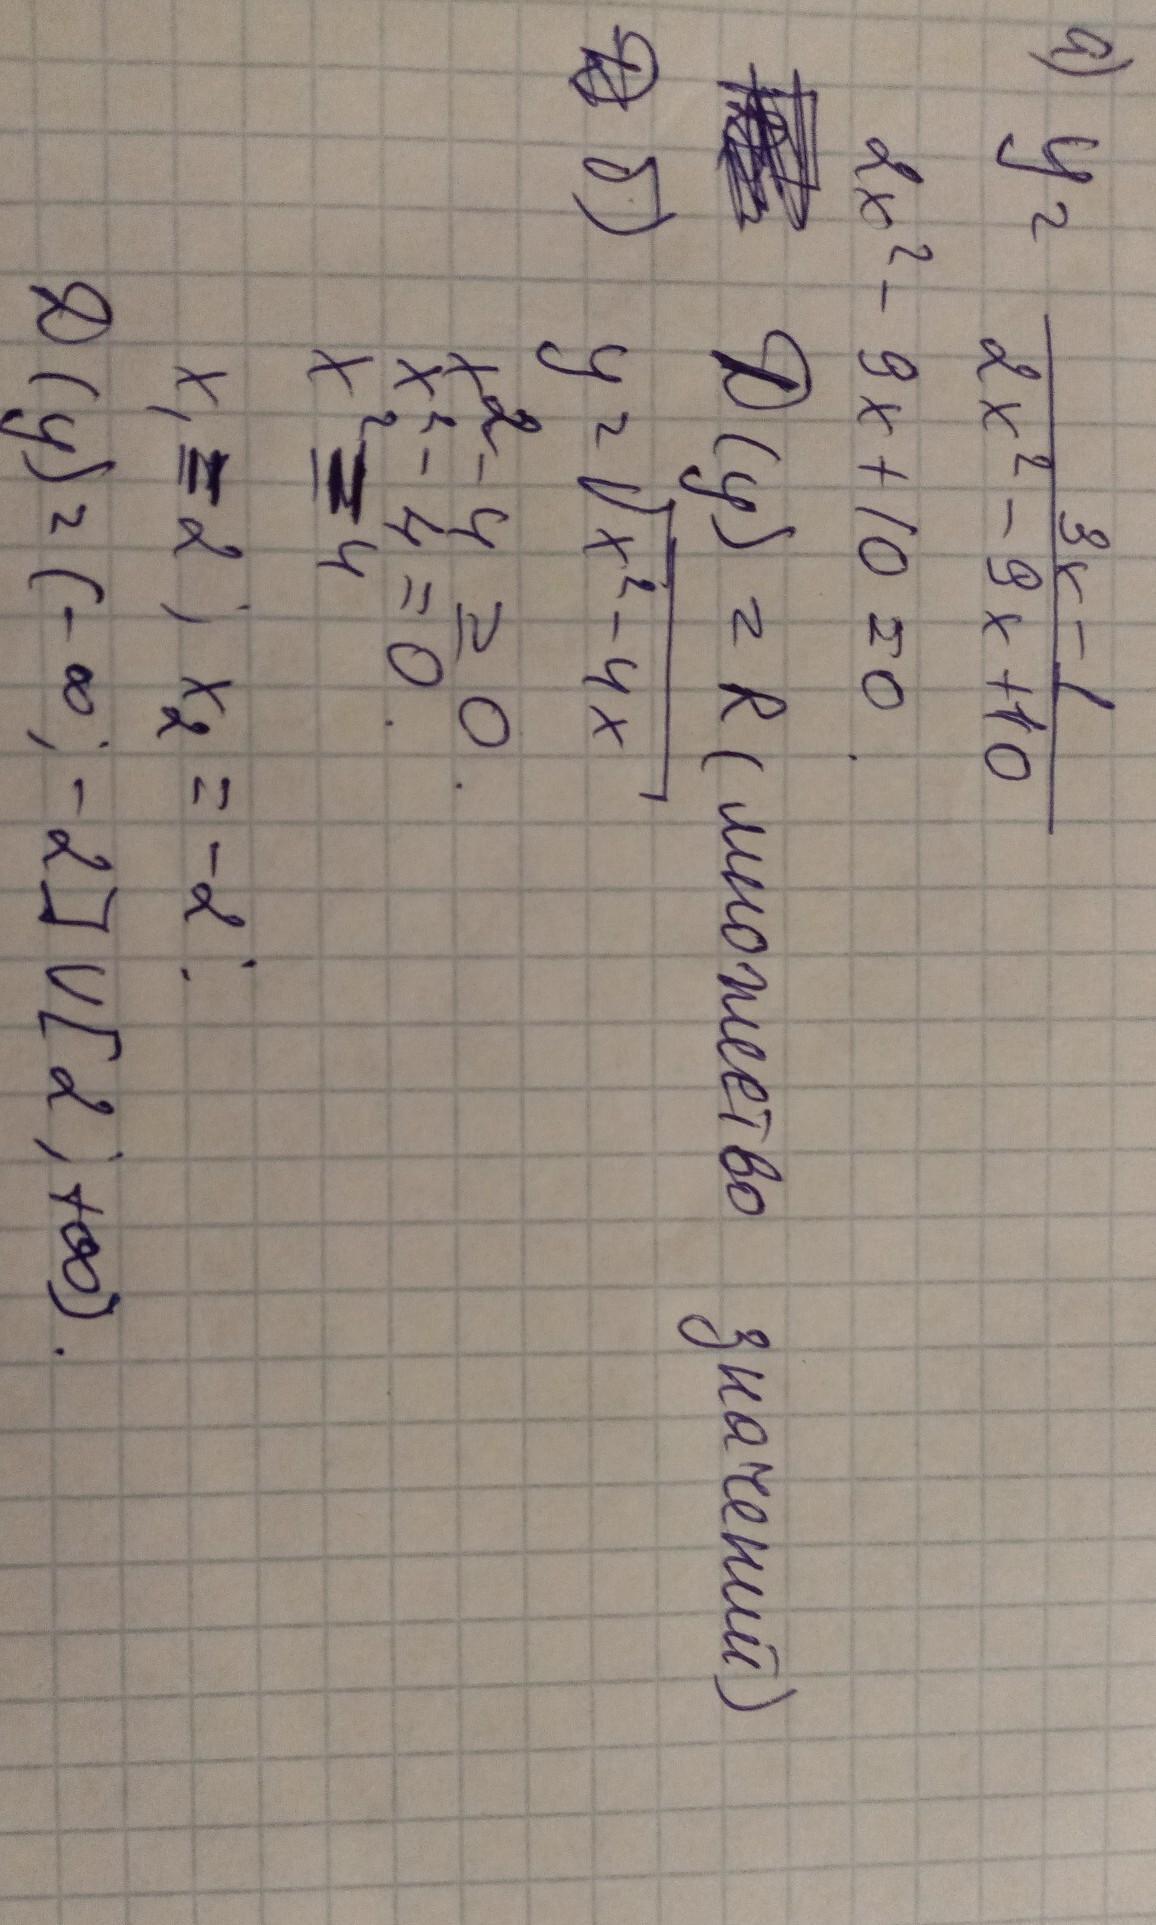 а) y = 3x-1 / 2x²-9x+10
2x² - 9x + 10 = 0.
D(y) = R (множество значений)
б) y = √x²-4x
x² - 4 ≥ 0.
x² - 4 = 0.
x² = 4
x₁ = 2; x₂ = -2;
D(y) = (-∞; -2] ∪ [2; +∞).